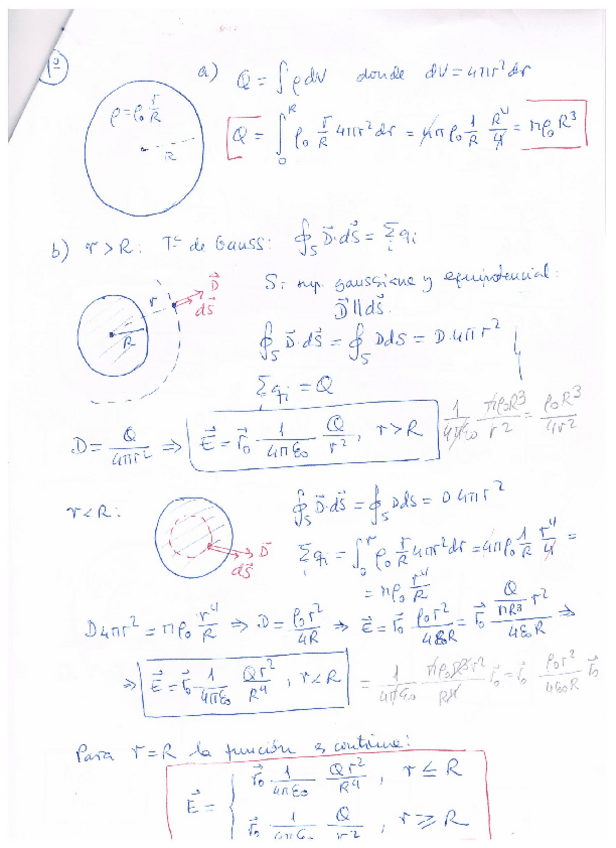 1º
a) Q = ∫ρdV donde dV = 4πr²dr
ρ=ρ₀ r/R
R
Q = ∫₀ᴿ ρ₀ r/R 4πr²dr = 4πρ₀ 1/R R⁴/4 = πρ₀R³
b) r>R: Tª de Gauss: ∮ₛ D⃗·dS⃗ = Σᵢ qᵢ
S: sup. gaussiana y equipotencial:
D⃗ ∥ dS⃗.
r D⃗ dS⃗
R
∮ₛ D⃗·dS⃗ = ∮ₛ DdS = D·4πr²
Σᵢ qᵢ = Q
D = Q/4πr² ⇒ E⃗ = r⃗₀ 1/4πε₀ Q/r², r>R
1/4πε₀ πρ₀R³/r² = ρ₀R³/4r²
r<R:
∮ₛ D⃗·dS⃗ = ∮ₛ DdS = D4πr²
D⃗
dS⃗
Σᵢ qᵢ = ∫₀ʳ ρ₀ r/R 4πr²dr = 4πρ₀ 1/R r⁴/4 =
= πρ₀ r⁴/R
D4πr² = πρ₀ r⁴/R ⇒ D = ρ₀r²/4R ⇒ E⃗ = r⃗₀ ρ₀r²/4ε₀R = r⃗₀ Q/πR³ r²/4ε₀R ⇒
⇒ E⃗ = r⃗₀ 1/4πε₀ Qr²/R⁴, r<R
= 1/4πε₀ πρ₀R³r²/R⁴ r⃗₀ = r⃗₀ ρ₀r²/4ε₀R r⃗₀
Para r=R la función es continua:
E⃗ = { r⃗₀ 1/4πε₀ Qr²/R⁴, r ≤ R
r⃗₀ 1/4πε₀ Q/r², r ≥ R